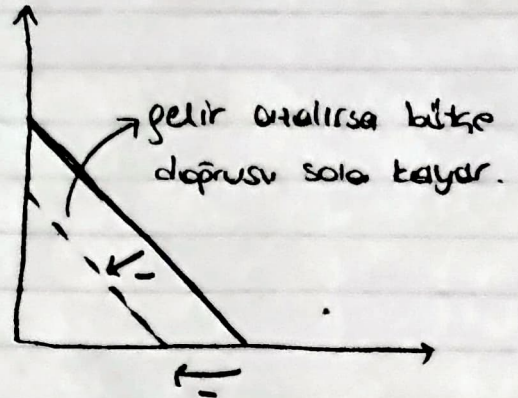 gelir azalırsa bütçe
doğrusu sola kayar.
-
-